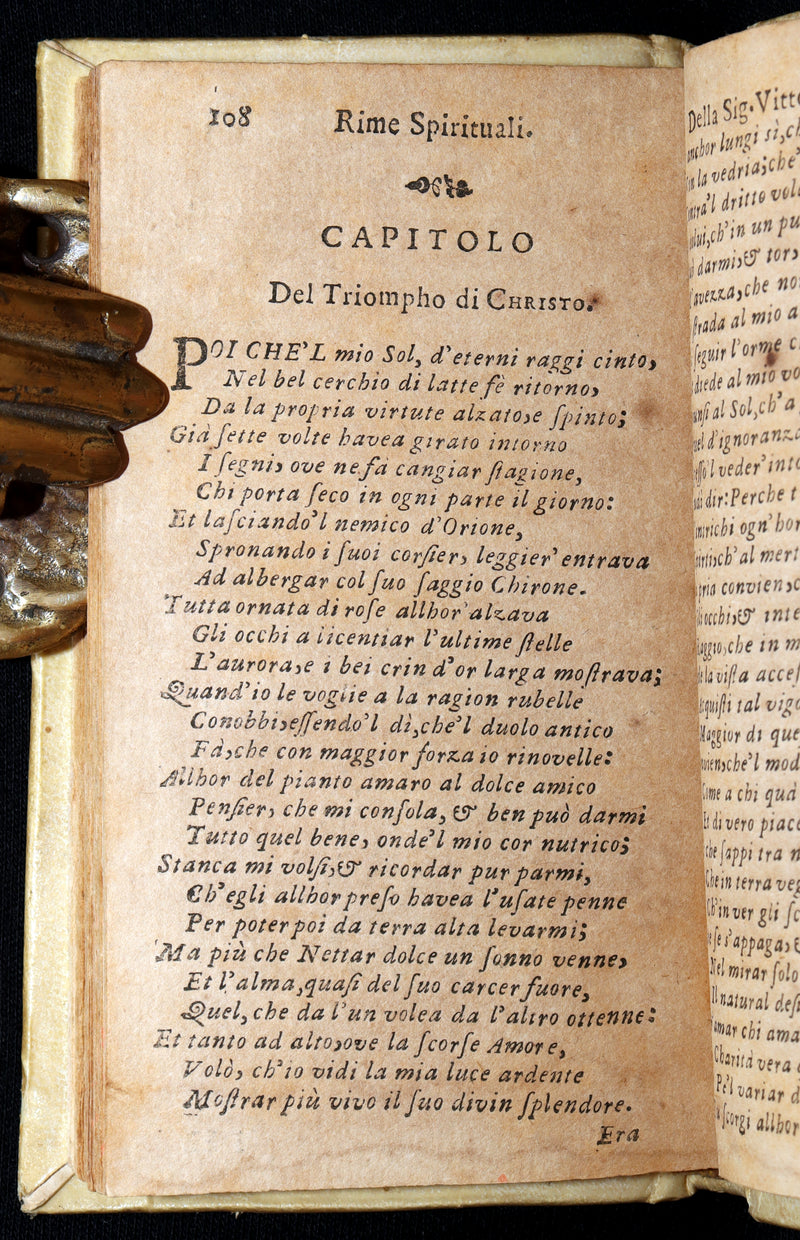 108 Rime Spirituali.
CAPITOLO
Del Triompho di CHRISTO.
POI CHE'L mio Sol, d'eterni raggi cinto,
Nel bel cerchio di latte fè ritorno,
Da la propria virtute alzato,e ſpinto;
Già ſette volte havea girato intorno
I ſegni, ove ne fà cangiar ſtagione,
Chi porta ſeco in ogni parte il giorno:
Et laſciando'l nemico d'Orione,
Spronando i ſuoi corſier, leggier' entrava
Ad albergar col ſuo ſaggio Chirone.
Tutta ornata di roſe allhor'alzava
Gli occhi a licentiar l'ultime ſtelle
L'aurora,e i bei crin d'or larga moſtrava;
Quand'io le voglie a la ragion rubelle
Conobbi,eſſendo'l dì,che'l duolo antico
Fà,che con maggior forza io rinovelle:
Allhor del pianto amaro al dolce amico
Penſier, che mi conſola, & ben può darmi
Tutto quel bene, onde'l mio cor nutrico;
Stanca mi volſi,& ricordar pur parmi,
Ch'egli allhor preſo havea l'uſate penne
Per poter poi da terra alta levarmi;
Ma più che Nettar dolce un ſonno venne,
Et l'alma,quaſi del ſuo carcer fuore,
Quel, che da l'un volea da l'altro ottenne:
Et tanto ad alto,ove la ſcorſe Amore,
Volò, ch'io vidi la mia luce ardente
Moſtrar più vivo il ſuo divin ſplendore.
Era
Della Sig. Vitt
lungi sì,ch
la vedria;che
dritto vol
ch'in un pu
darmi,& tor
che no
al mio a
ſeguir l'orme c
diede al mio vo
al Sol,ch'a
d'ignoranza
veder' inte
dir:Perche t
ogn' hor
ch'al mert
convien,c
occhi,& inte
che in m
la viſta acceſ
tal vigo
Maggior di que
che'l mod
Come a chi qua
Et di vero piace
che ſappi tra n
Che in terra veg
Ch'in ver gli ſc
s'appaga,
Nel mirar ſolo
Il natural deſi
amar chi ama
Charità vera
Pe'l variar d
allhor